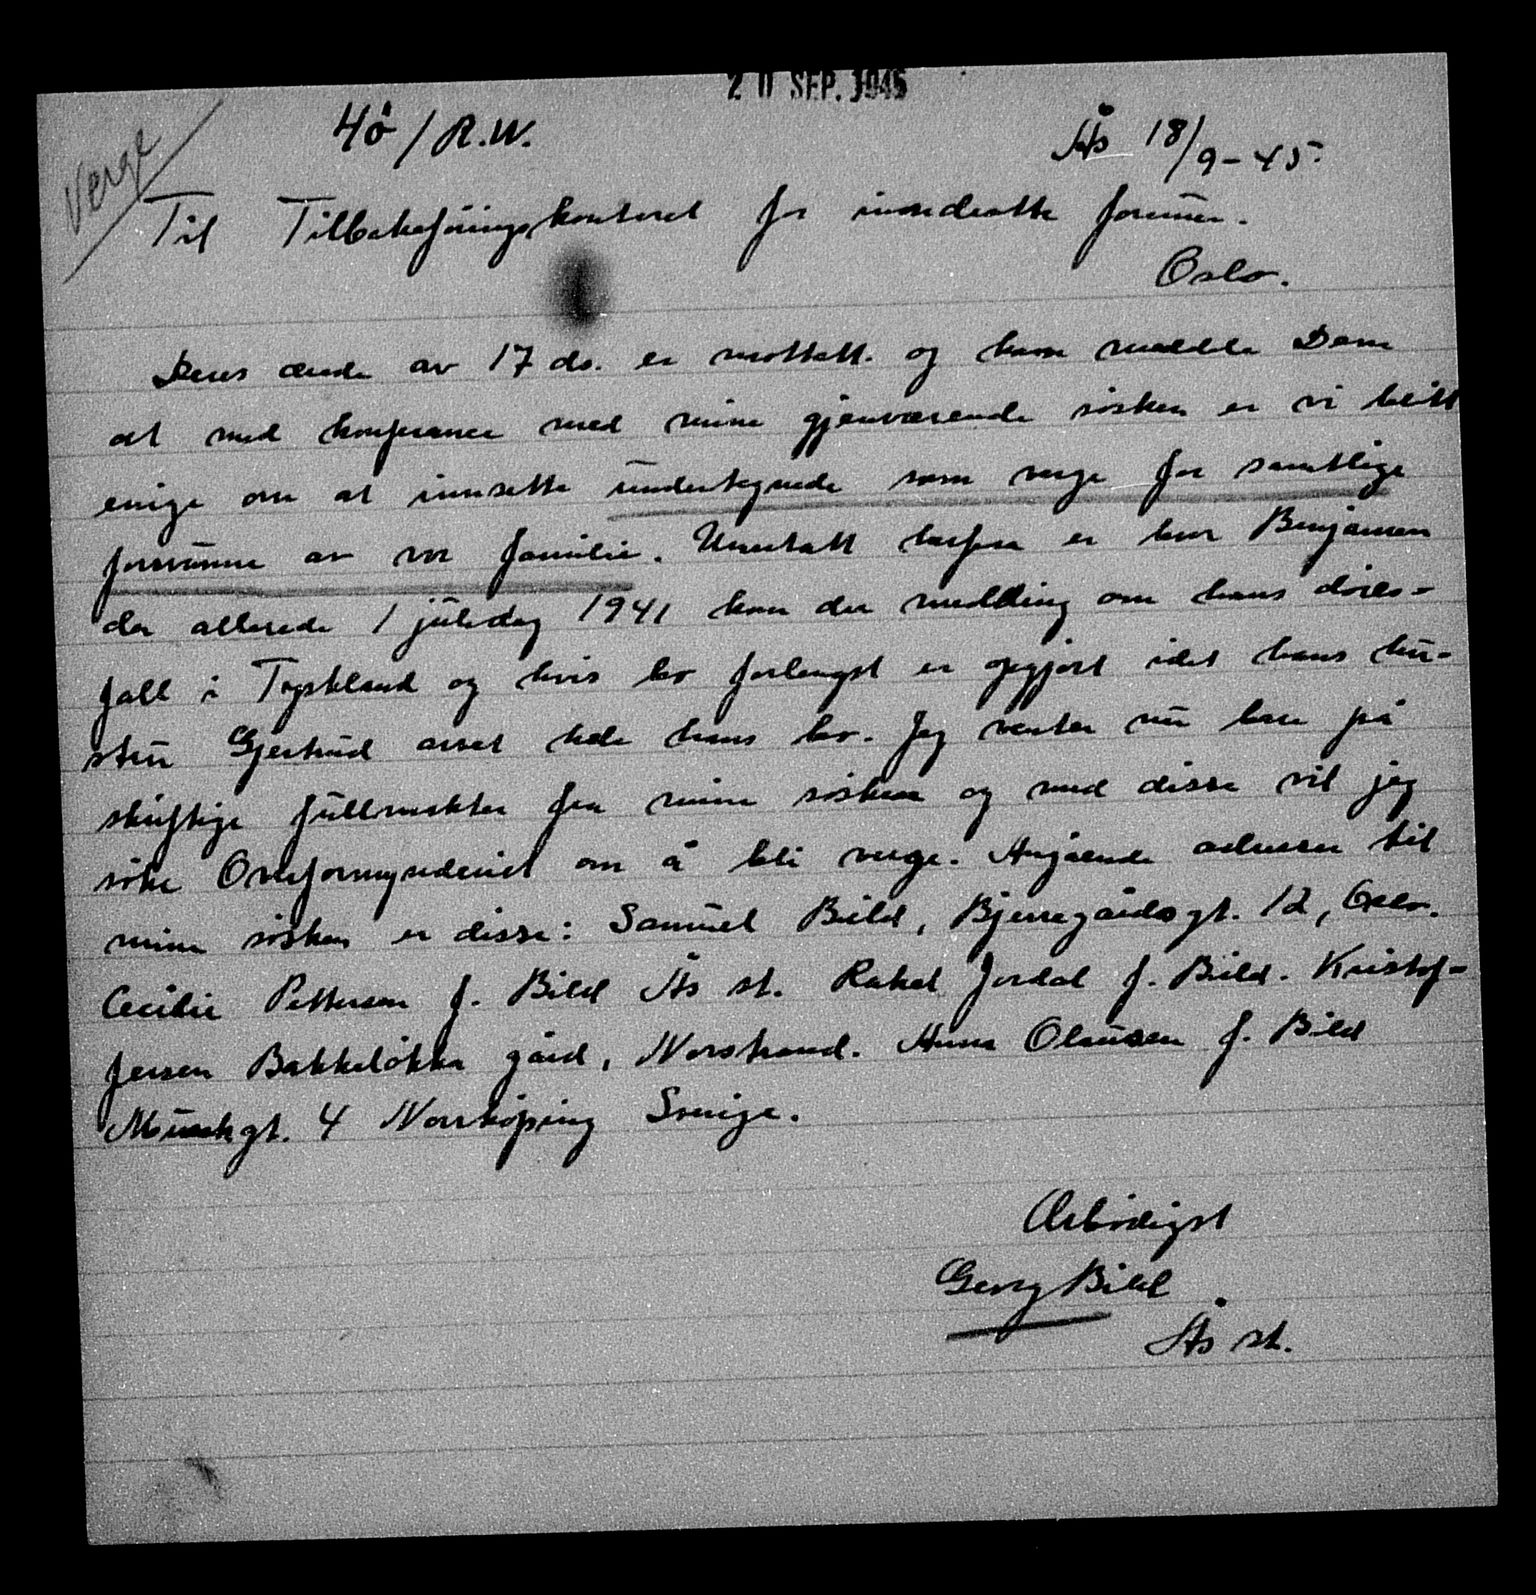 20 SEP. 1945
4ö/R.W.
Ås 18/9-45.
Verge
Til Tilbakeføringskontoret for inndratte formuer.
Oslo.
Deres ærede av 17 ds. er mottatt. og kan meddele Dem
at med konferance med mine gjenværende søsken er vi blitt
enige om at innsette undertegnede som verge for samtlige
forsvunne av vor familie. Unntatt herfra er bror Benjamin
da allerede 1 juledag 1941 kom der melding om hans døds-
fall i Tyskland og hvis bo forlengst er opgjort idet hans hu-
stru Gjertrud arvet hele hans bo. Jeg venter nu bare på
skriftlige fullmakter fra mine søsken og med disse vil jeg
søke Overformynderiet om å bli verge. Angående adresser til
mine søsken er disse: Samuel Bild, Bjerregårdsgt. 12, Oslo.
Cecilie Pettersen f. Bild Ås st. Rakel Jordal f. Bild. Kristof-
fersen Bakkeløkka gård, Norstrand. Anna Olausen f. Bild
Munkgt. 4 Norrköping Sverige.
Ærbødigst
Georg Bild
Ås st.